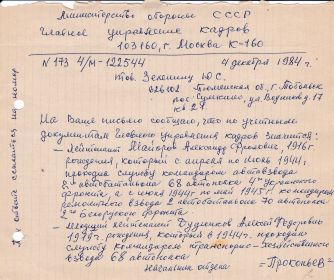 Министерство обороны СССР
Главное управление кадров
103160, г. Москва К-160
N 173 4/М-122544 4 декабря 1984 г.
тов. Зеленину Ю.С.
626102 Тюменская об., г. Тобольск
пос. Сумкино, ул. Водников д. 17
кв 27.
На Ваше письмо сообщаю, что по учетным
документам Главного управления кадров значится:
– Лейтенант Майоров Александр Фролович, 1916г.
рождения, который с апреля по июль 1944г.
проходил службу командиром автовзвода
автобатальона 68 автополка 4го Украинского
фронта, а с июля по май 1945г. командиром
ремонтного взвода 2 автобатальона 70 автополка
2го Белорусского фронта.
– Младший лейтенант Алексей Федорович
рождения, который в 1944г. проходил
службу командиром транспортно-хозяйственного
взвода 68 автополка
Начальник отдела – Прокопьев –
В ответе ссылаться на номер